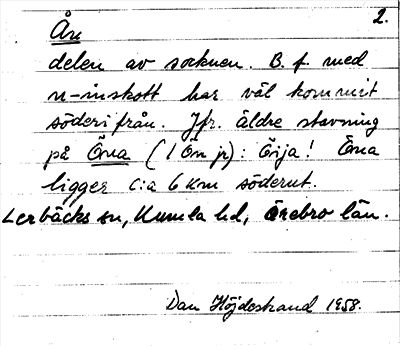 2.
Ån
delen av socknen. B. f. med
n-inskott har väl kommit
söderifrån. Jfr. äldre stavning
på Öna ( 1 Ön jr) : Öija! Öna
ligger c:a 6 km söderut.
Lerbäcks sn, Kumla hd, Örebro län.
Dan Höjdestrand 1958.